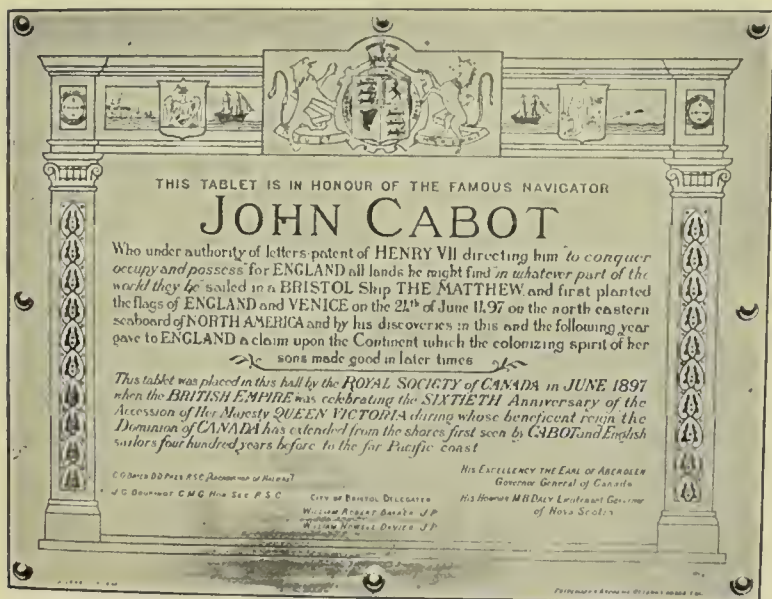 THIS TABLET IS IN HONOUR OF THE FAMOUS NAVIGATOR
JOHN CABOT
Who under authority of letters patent of HENRY VII directing him "to conquer
occupy and possess" for ENGLAND all lands he might find "in whatever part of the
world they be" sailed in a BRISTOL Ship THE MATTHEW, and first planted
the flags of ENGLAND and VENICE on the 24th of June 1497 on the north eastern
seaboard of NORTH AMERICA and by his discoveries in this and the following year
gave to ENGLAND a claim upon the Continent which the colonizing spirit of her
sons made good in later times
This tablet was placed in this hall by the ROYAL SOCIETY of CANADA in JUNE 1897
when the BRITISH EMPIRE was celebrating the SIXTIETH Anniversary of the
Accession of Her Majesty QUEEN VICTORIA during whose beneficent reign the
Dominion of CANADA has extended from the shores first seen by CABOT and English
sailors four hundred years before to the far Pacific coast
C. O'BRIEN D D PRES R S C (ARCHBISHOP OF HALIFAX)
J. G. BOURINOT C M G HON SEC R S C
CITY OF BRISTOL DELEGATES
WILLIAM ROBERT BARKER J. P.
WILLIAM HOWELL DAVIES J. P.
HIS EXCELLENCY THE EARL OF ABERDEEN
Governor General of Canada
HIS HONOUR M B DALY Lieutenant Governor
of Nova Scotia